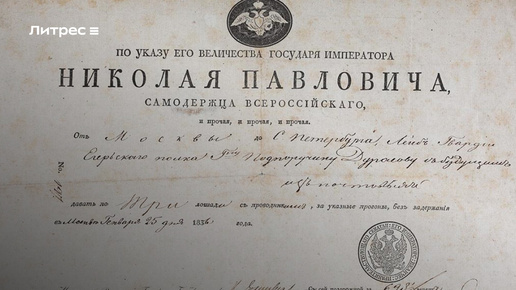 Литрес
ПО УКАЗУ ЕГО ВЕЛИЧЕСТВА ГОСУДАРЯ ИМПЕРАТОРА
НИКОЛАЯ ПАВЛОВИЧА,
САМОДЕРЖЦА ВСЕРОССІЙСКАГО,
и прочая, и прочая, и прочая.
Отъ Москвы до С Петербурга, Лейбъ Гвардіи
Егерскаго полка Гну Подпоручику Дурасову съ будущимъ
No.
изъ почтовыхъ
давать по Три лошади съ проводникомъ, за указные прогоны, безъ задержанія
Москва Генваря 25 дня 1836 года.